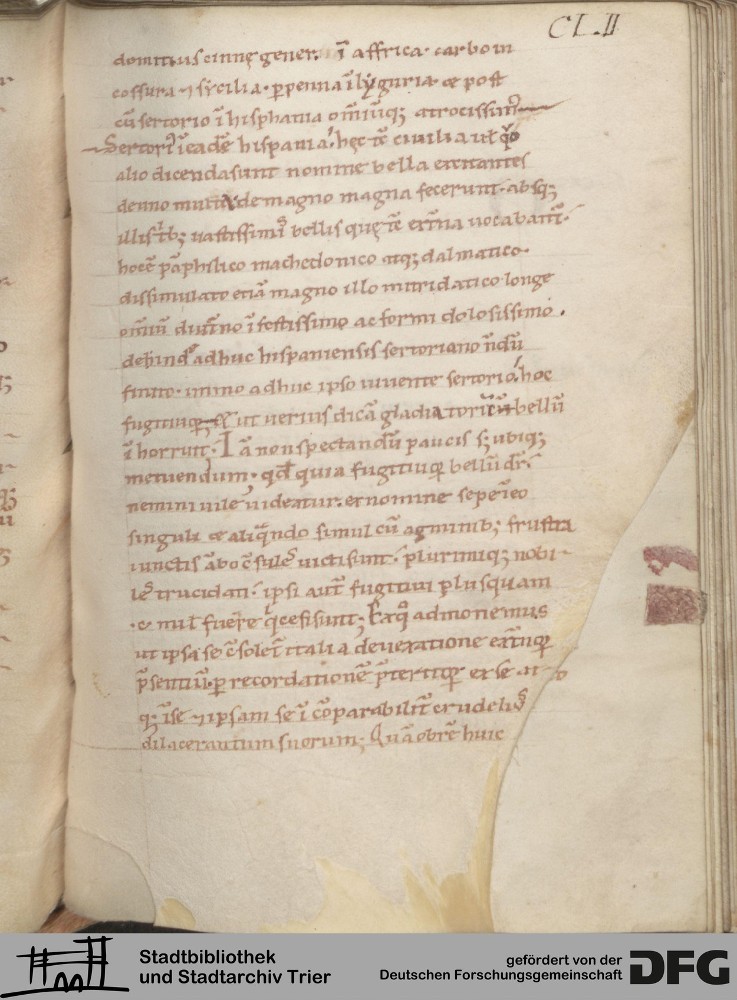 CLII
domitius cinnę gener. ī affrica. carbo in
cossura ⁊ sycilia. ꝑpenna ī lyguria & post
cū sertorio ī hisphania omīuq; atrocissim᷒
Sertori᷒ ī eadē hispania. hęc tē ciuilia ut̄ qͦ
alio dicenda sunt nomine bella excitantes
demagno magna fecerunt. absq;
illis t̄b; uastissimis bellis quę tē ext̄na uocabant̄.
hoc ē pāphilico machedonico atq; dalmatico.
dissimulato etiā magno illo mitridatico longe
omīū diut̄no īfestissimo ac formidolosissimo.
dehinde adhuc hispaniensis sertoriano n̄dū
finito. immo adhuc ipso uiuente sertorio. hoc
fugitiuoꝝ & ut uerius dicā gladiatorū bellū
ī horruit. Iā non spectandū paucis s; ubiq;
metuendum. qd̄ quia fugitiuoꝝ bellū dr̄.
nemini uile uideatur. et nomine sepe ī eo
singuli & aliqn̄do simul cū agminib; frustra
iunctis ābo c̄sules uicti sunt. plurimiq; nobi-
les trucidati. ipsi aut̄ fugitiui plus quam
.c. mil̄ fuere qͥ cesi sunt; Ex qͦ admonemus
ut ipsa se c̄solet̄ italia de uexatione ext̄noꝝ
p̄sentiū. ꝑ recordationē p̄teritoꝝ ex se at
q; ī se ⁊ ipsam se ī cōparabilit̄ crudelius
dilacerantium suorum; Quā obrē huic
Stadtbibliothek
und Stadtarchiv Trier
gefördert von der
Deutschen Forschungsgemeinschaft
DFG